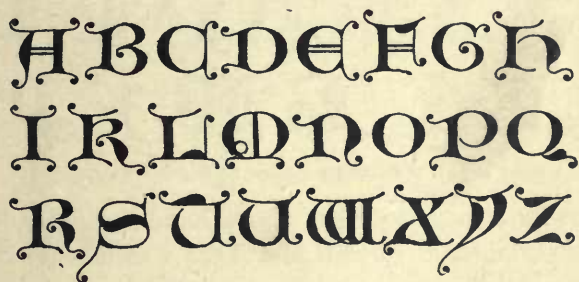 A B C D E F G h
I K L M N O P Q
R S T U W X Y Z